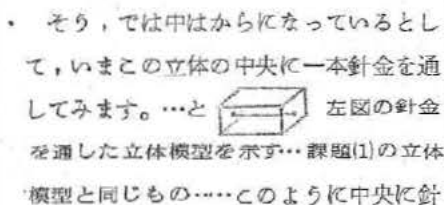 ・ そう，では中はからになっているとし
て，いまこの立体の中央に一本針金を通
してみます。…と 左図の針金
を通した立体模型を示す…課題(1)の立体
模型と同じもの……このように中央に針